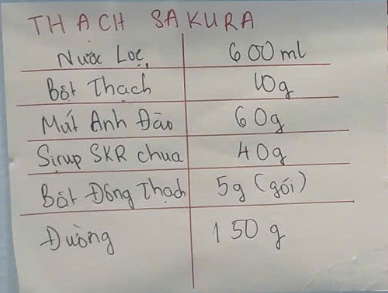 THẠCH SAKURA
Nước Lọc 600ml
Bột Thạch 10g
Mứt Anh Đào 60g
Sirup SKR chua 40g
Bột Đông Thạch 5g (gói)
Đường 150g